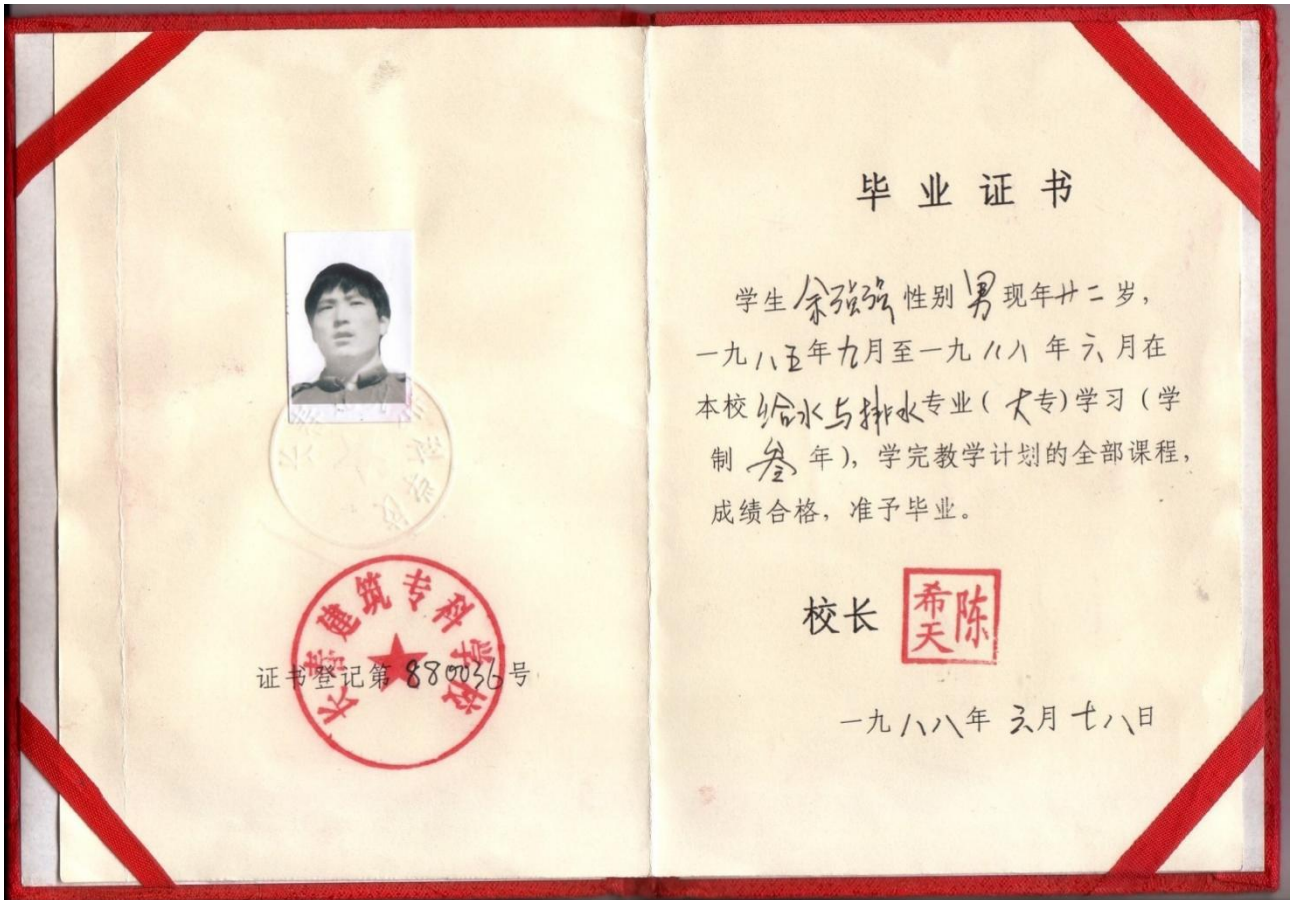 长春建筑专科学校
证书登记第880036号
毕业证书
学生余强强性别男现年廿二岁，
一九八五年九月至一九八八年六月在
本校给水与排水专业（大专）学习（学
制叁年），学完教学计划的全部课程，
成绩合格，准予毕业。
校长 陈希天
一九八八年六月十八日